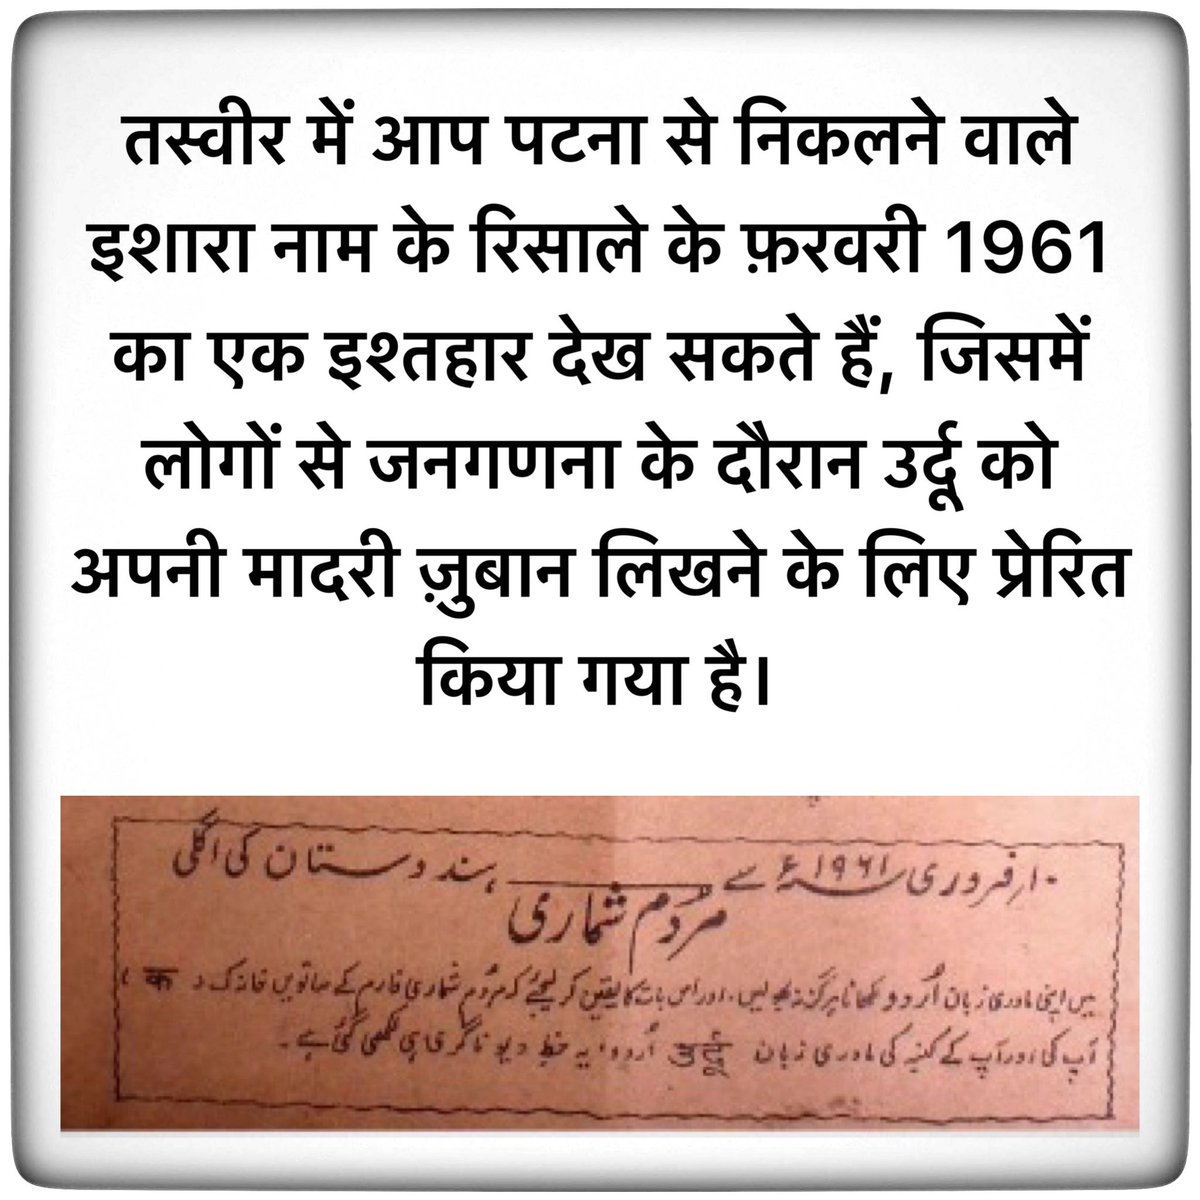 तस्वीर में आप पटना से निकलने वाले
इशारा नाम के रिसाले के फ़रवरी 1961
का एक इश्तहार देख सकते हैं, जिसमें
लोगों से जनगणना के दौरान उर्दू को
अपनी मादरी ज़ुबान लिखने के लिए प्रेरित
किया गया है।
۱۰ر فروری ۱۹۶۱ء سے ہندوستان کی اگلی
مردُم شماری
میں اپنی مادری زبان اُردو لکھانا ہرگز نہ بھولیں۔ اور اس بات کا یقین کر لیجئے کہ مردُم شماری فارم کے ساتویں خانہ ک ( क )
آپ کی اور آپ کے کنبہ کی مادری زبان उर्दू اُردو بہ خط دیوناگری ہی لکھی گئی ہے۔